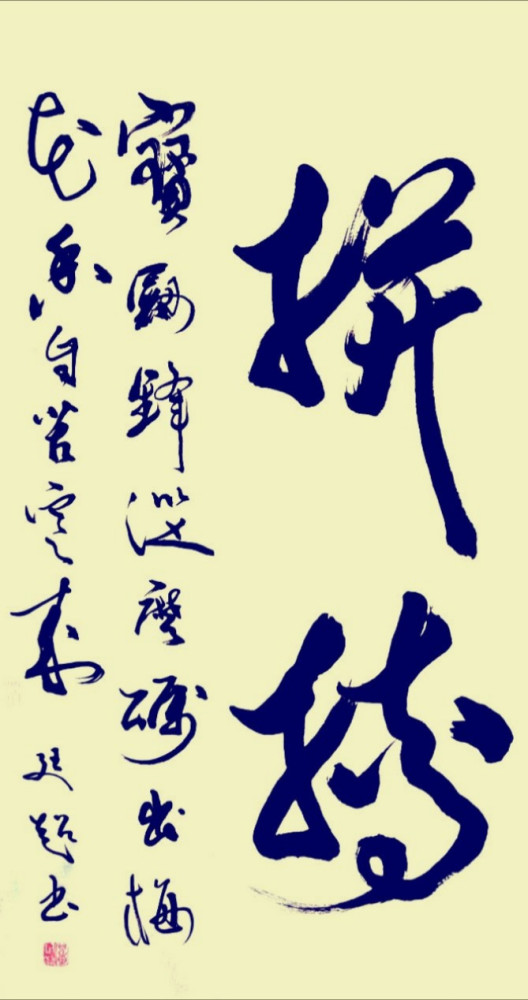 拼搏
寶劍鋒從磨礪出梅
花香自苦寒来
廷超书